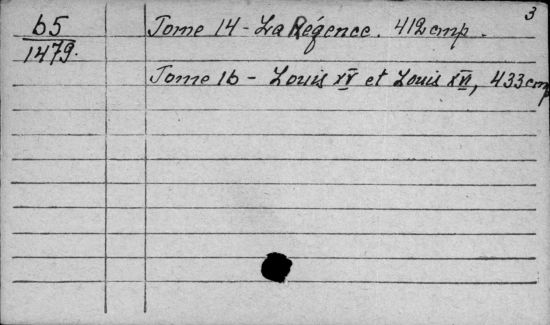 3
65
1479.
Tome 14 - La Régence. 412 стр.
Tome 16 - Louis XV et Louis XVI, 433 стр